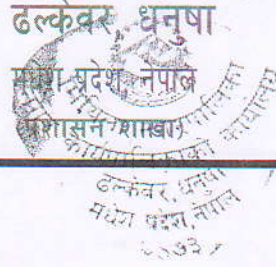 ढल्केवर, धनुषा
मधेश प्रदेश, नेपाल
(प्रशासन शाखा)
कार्यपालिकाको कार्यालय
ढल्केवर, धनुषा
मधेश प्रदेश, नेपाल
२०७३